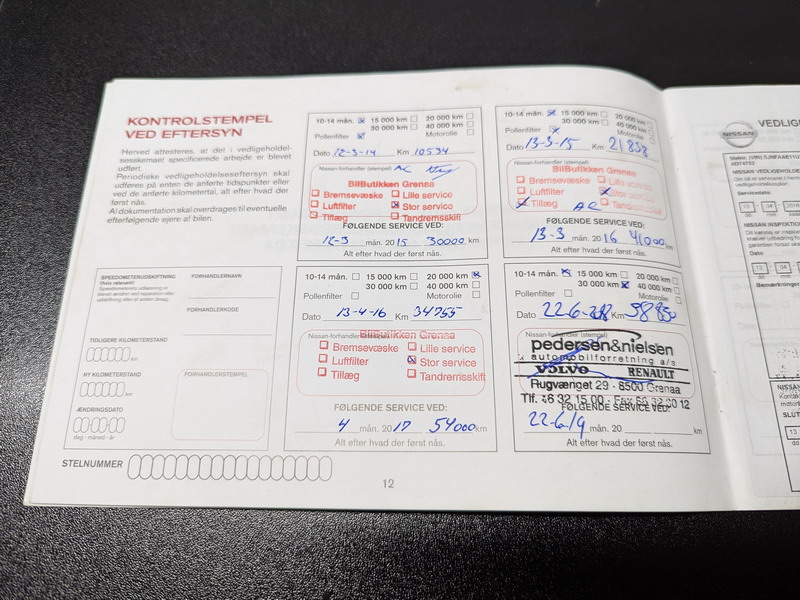 KONTROLSTEMPEL
VED EFTERSYN
Herved attesteres, at det i vedligehold-
sesskemaet specificerede arbejde er blevet
udført.
Periodiske vedligeholdelseseftersyn skal
udføres på enten de anførte tidspunkter eller
ved de anførte kilometertal, alt efter hvad der
først nås.
Al dokumentation skal overdrages til eventuelle
efterfølgende ejere af bilen.
10-14 mån. 15 000 km 20 000 km
30 000 km 40 000 km
Pollenfilter Motorolie
Dato 12-3-14 Km 10534
Nissan-forhandler (stempel) AC
BilButikken Grenaa
Bremsevæske Lille service
Luftfilter Stor service
Tillæg Tandremsskift
FØLGENDE SERVICE VED:
12-3 mån. 2015 30000 km
Alt efter hvad der først nås.
10-14 mån. 15 000 km 20 000 km
30 000 km 40 000 km
Pollenfilter Motorolie
Dato 13-3-15 Km 21838
Nissan-forhandler (stempel)
BilButikken Grenaa
Bremsevæske Lille service
Luftfilter Stor service
Tillæg AC Tandremsskift
FØLGENDE SERVICE VED:
13-3 mån. 2016 41000 km
Alt efter hvad der først nås.
SPEEDOMETERUDSKIFTNING
(hvis relevant)
FORHANDLERNAVN
FORHANDLERKODE
TIDLIGERE KILOMETERSTAND
km
NY KILOMETERSTAND
km
FORHANDLERSTEMPEL
ÆNDRINGSDATO
dag - måned - år
10-14 mån. 15 000 km 20 000 km
30 000 km 40 000 km
Pollenfilter Motorolie
Dato 13-4-16 Km 34755
Nissan-forhandler (stempel)
BilButikken Grenaa
Bremsevæske Lille service
Luftfilter Stor service
Tillæg Tandremsskift
FØLGENDE SERVICE VED:
4 mån. 2017 54000 km
Alt efter hvad der først nås.
10-14 mån. 15 000 km 20 000 km
30 000 km 40 000 km
Pollenfilter Motorolie
Dato 22-6- Km
Nissan-forhandler (stempel)
pedersen & nielsen
automobilforretning a/s
VOLVO RENAULT
Rugvænget 29 - 8500 Grenaa
Tlf. 86 32 15 00 - Fax 86 32 60 12
FØLGENDE SERVICE VED:
22-6-19 mån. 20 km
Alt efter hvad der først nås.
STELNUMMER
12
NISSAN
VEDLIG